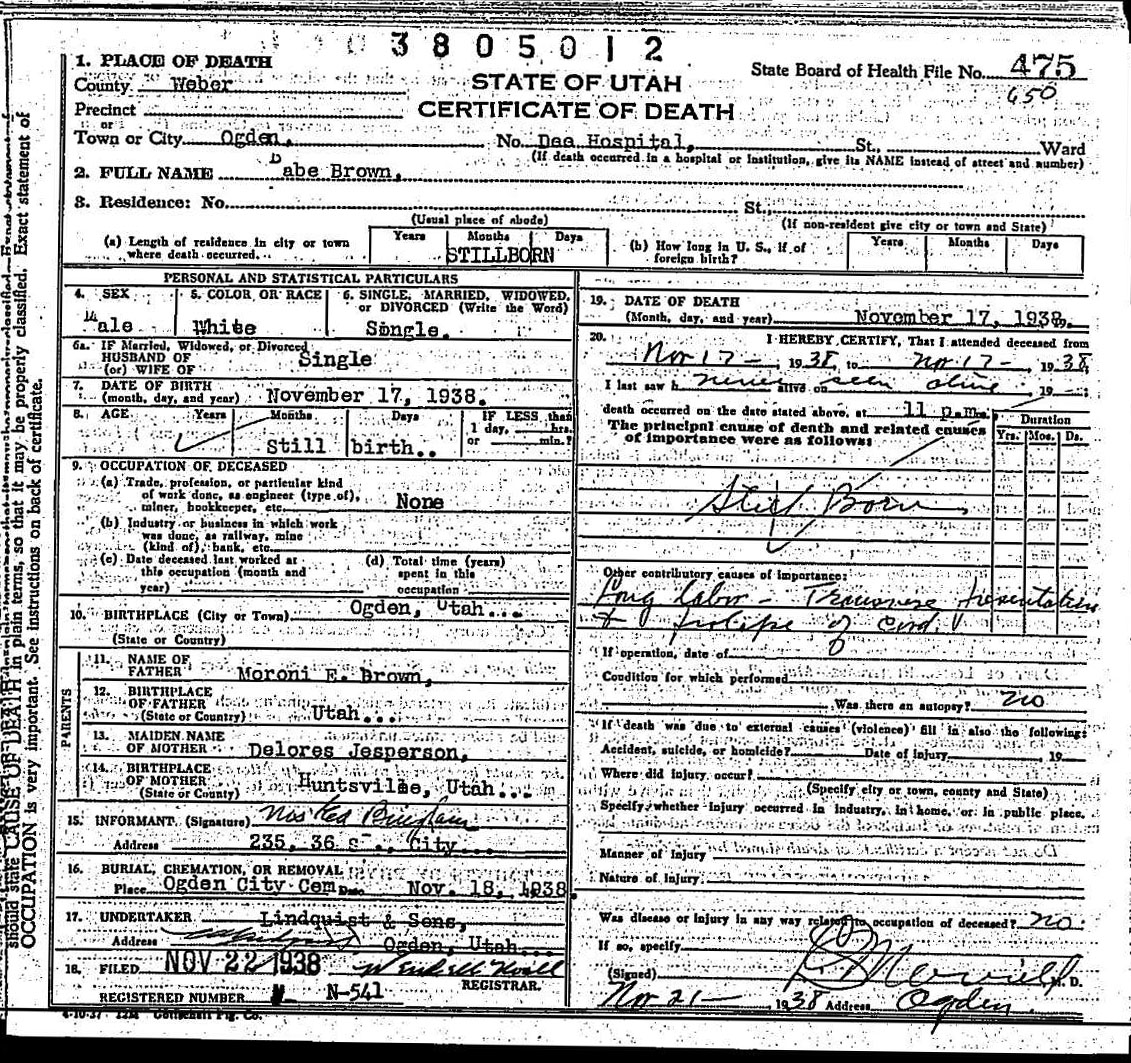 3 8 0 5 0 1 2
1. PLACE OF DEATH
County Weber
STATE OF UTAH
State Board of Health File No. 475
650
Precinct
CERTIFICATE OF DEATH
or
Town or City Ogden, No. Dee Hospital, St., Ward
(If death occurred in a hospital or institution, give its NAME instead of street and number)
2. FULL NAME Babe Brown,
3. Residence: No. St.,
(Usual place of abode) (If non-resident give city or town and State)
(a) Length of residence in city or town where death occurred. Years Months Days
STILLBORN
(b) How long in U. S., if of foreign birth? Years Months Days
PERSONAL AND STATISTICAL PARTICULARS
4. SEX 5. COLOR OR RACE 6. SINGLE, MARRIED, WIDOWED, or DIVORCED (Write the Word)
Male White Single.
6a. IF Married, Widowed, or Divorced
HUSBAND OF
(or) WIFE OF Single
7. DATE OF BIRTH
(month, day, and year) November 17, 1938.
8. AGE Years Months Days IF LESS than
1 day, hrs.
or min.?
Still birth..
9. OCCUPATION OF DECEASED
(a) Trade, profession, or particular kind
of work done, as engineer (type of),
miner, bookkeeper, etc. None
(b) Industry or business in which work
was done, as railway, mine
(kind of), bank, etc.
(c) Date deceased last worked at
this occupation (month and
year)
(d) Total time (years)
spent in this
occupation
10. BIRTHPLACE (City or Town) Ogden, Utah...
(State or Country)
PARENTS
11. NAME OF
FATHER Moroni E. Brown,
12. BIRTHPLACE
OF FATHER
(State or Country) Utah...
13. MAIDEN NAME
OF MOTHER Delores Jesperson,
14. BIRTHPLACE
OF MOTHER
(State or Country) Huntsville, Utah...
15. INFORMANT (Signature)
Address 235, 36 S., City...
16. BURIAL, CREMATION, OR REMOVAL
Place Ogden City Cem Date Nov. 18, 1938
17. UNDERTAKER Lindquist & Sons,
Address Ogden, Utah...
18. FILED NOV 22 1938
REGISTRAR.
REGISTERED NUMBER N-541
4-10-37 12M
19. DATE OF DEATH
(Month, day, and year) November 17, 1938.
20. I HEREBY CERTIFY, That I attended deceased from
Nov 17 - 1938, to Nov 17 - 1938,
I last saw h never seen alive on alive, 19 ;
death occurred on the date stated above, at 11 p.m.
The principal cause of death and related causes
of importance were as follows:
Duration
Yrs. Mos. Ds.
Still Born
Other contributory causes of importance:
Long labor - Transverse presentation
& prolapse of cord.
If operation, date of
Condition for which performed
Was there an autopsy? no
If death was due to external causes (violence) fill in also the following:
Accident, suicide, or homicide? Date of injury 19
Where did injury occur?
(Specify city or town, county and State)
Specify whether injury occurred in industry, in home, or in public place.
Manner of Injury
Nature of Injury
Was disease or injury in any way related to occupation of deceased? no
If so, specify
(Signed) M. D.
Nov 21 - 1938 Address Ogden
should state CAUSE OF DEATH in plain terms, so that it may be properly classified. Exact statement of
OCCUPATION is very important. See instructions on back of certificate.